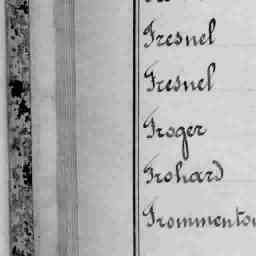 Fresnel
Fresnel
Froger
Frohard
Frommentou